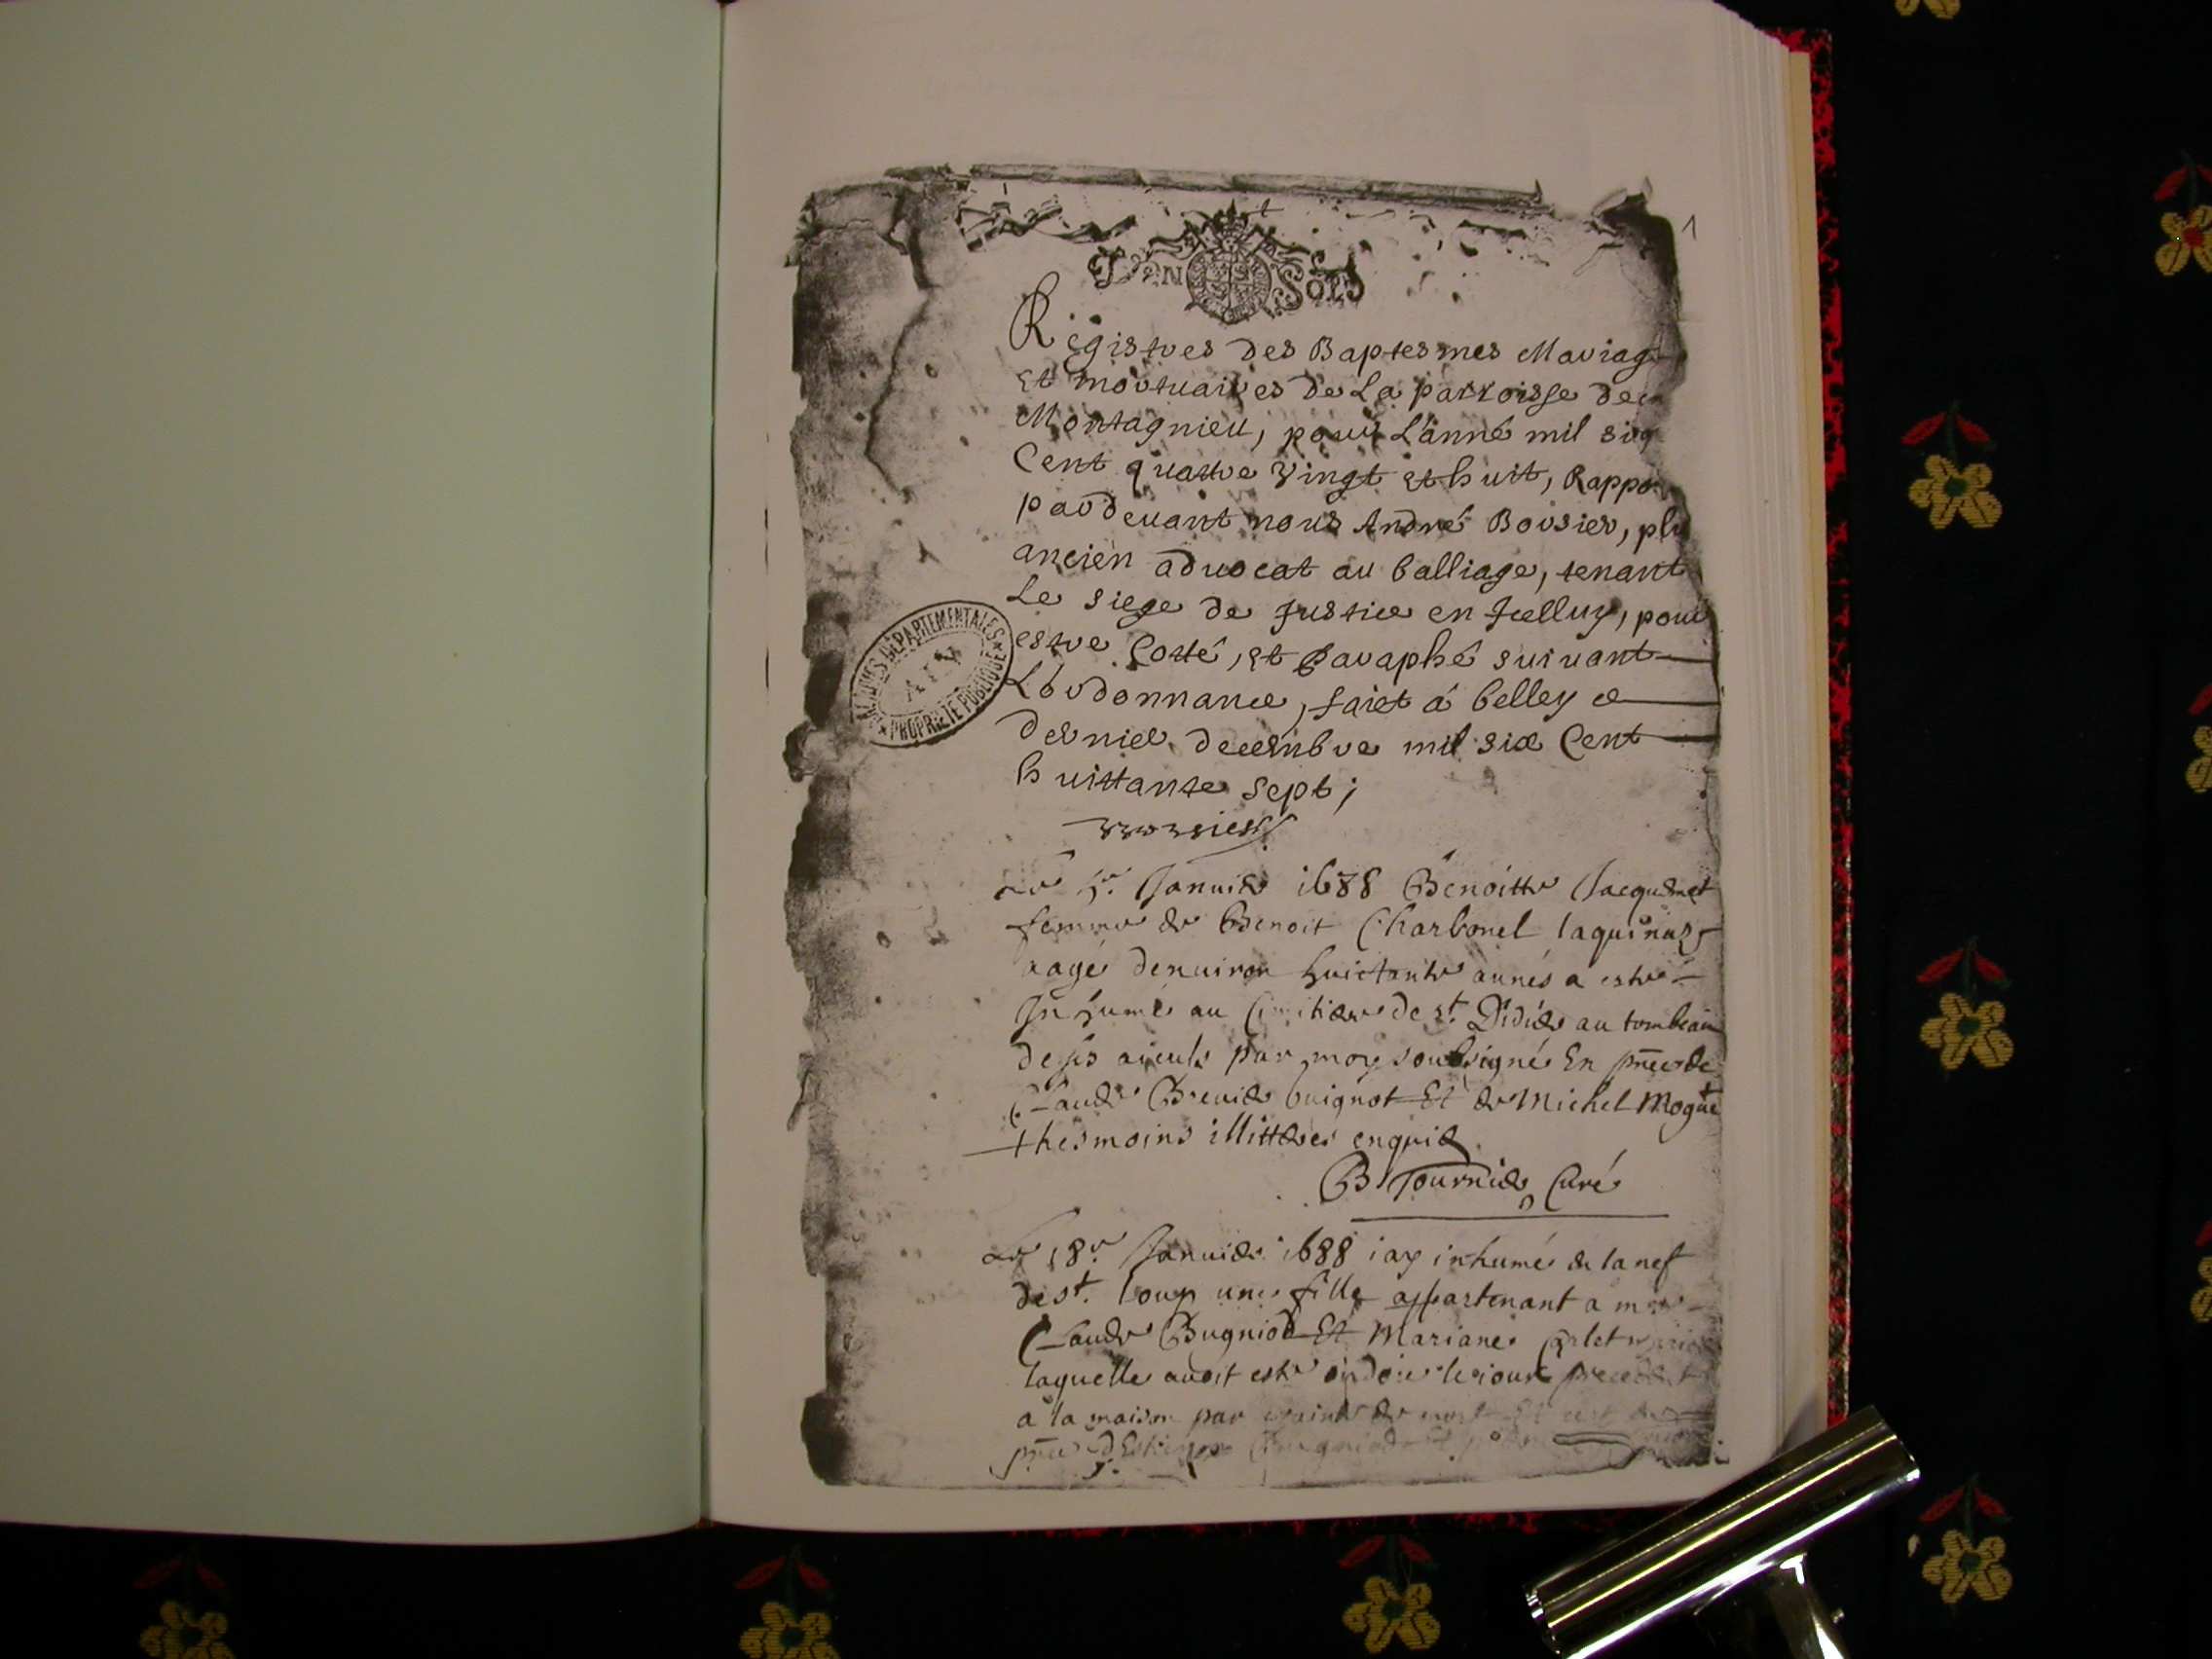 1
GEN SOLS
Registres des Baptesmes Mariag
et mortuaires de La parroisse de
Montagnieu, pour L'anné mil six
Cent quattre vingt et huit, Rappo
pardevant nous André Borsier, plu
ancien advocat au balliage, tenant
Le siege de Justice en Jcelluy, pour
estre Cotté, et Paraphé suivant
L'ordonnance, faict á belley ce
dernier decembre mil six Cent
huittante sept;
ARCHIVES DÉPARTEMENTALES
AIN
PROPRIÉTÉ PUBLIQUE
Le Januier 1688 Benoitte Jacquemet
femme de Benoit Charbonel
aagé denuiron huictante années a esté
Jnhumé au Cimitiere de st. Didier au tombeau
de ses aieuls par moy soubsigné En pnce de
Claude Breuide Et de Michel
thesmoins illitteres enquis
B Tournier Curé
Le 18e Januier 1688 iay inhumé de la nef
de st. loup une fille appartenant a
Claude Bugniod Et Mariane
laquelle auoit esté ondoié le iour precedent
a la maison par crainte de mort Et
pnce